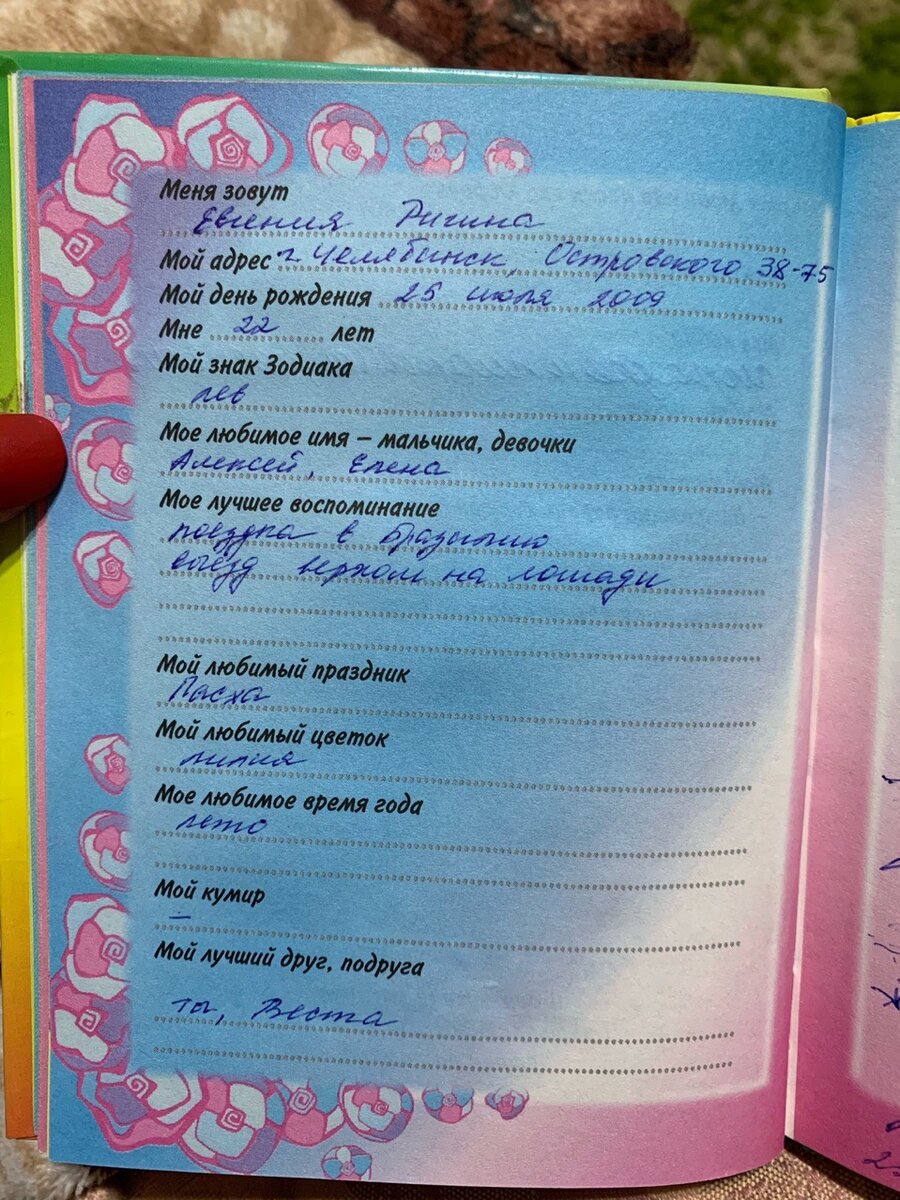 Меня зовут
Евгения Ригина
Мой адрес г. Челябинск, Островского 38-75
Мой день рождения 25 июля 2009
Мне 22 лет
Мой знак Зодиака
лев
Мое любимое имя – мальчика, девочки
Алексей, Елена
Мое лучшее воспоминание
поездка в Бразилию
выезд верхом на лошади
Мой любимый праздник
Пасха
Мой любимый цветок
лилия
Мое любимое время года
лето
Мой кумир
–
Мой лучший друг, подруга
ты, Веста